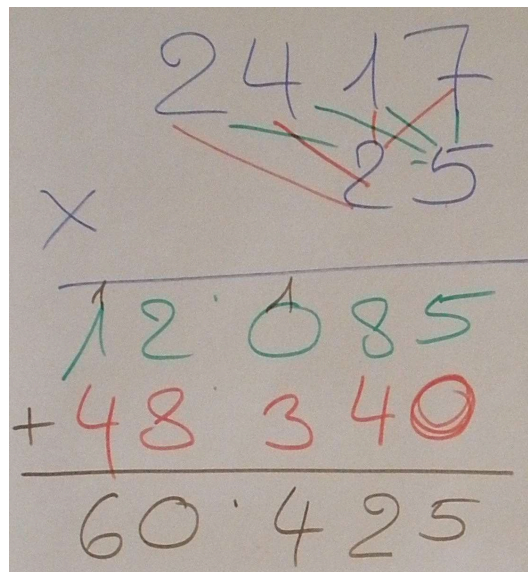 2417
× 25
12·085
+ 48 340
60·425